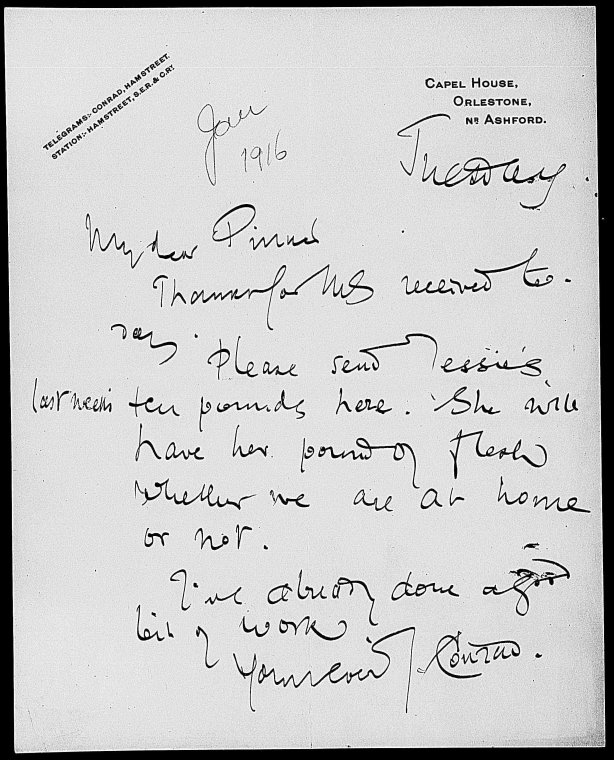 TELEGRAMS:- CONRAD, HAMSTREET.
STATION:- HAMSTREET, S.E.R. & C.RY.
CAPEL HOUSE,
ORLESTONE,
NR ASHFORD.
Jan
1916
Tuesday.
My dear Pinker
Thanks for MS received to-
day.
Please send Jessie's
last week's ten pounds here. She will
have her pound of flesh
whether we are at home
or not.
I've already done a good
bit of work
Yours ever J. Conrad.